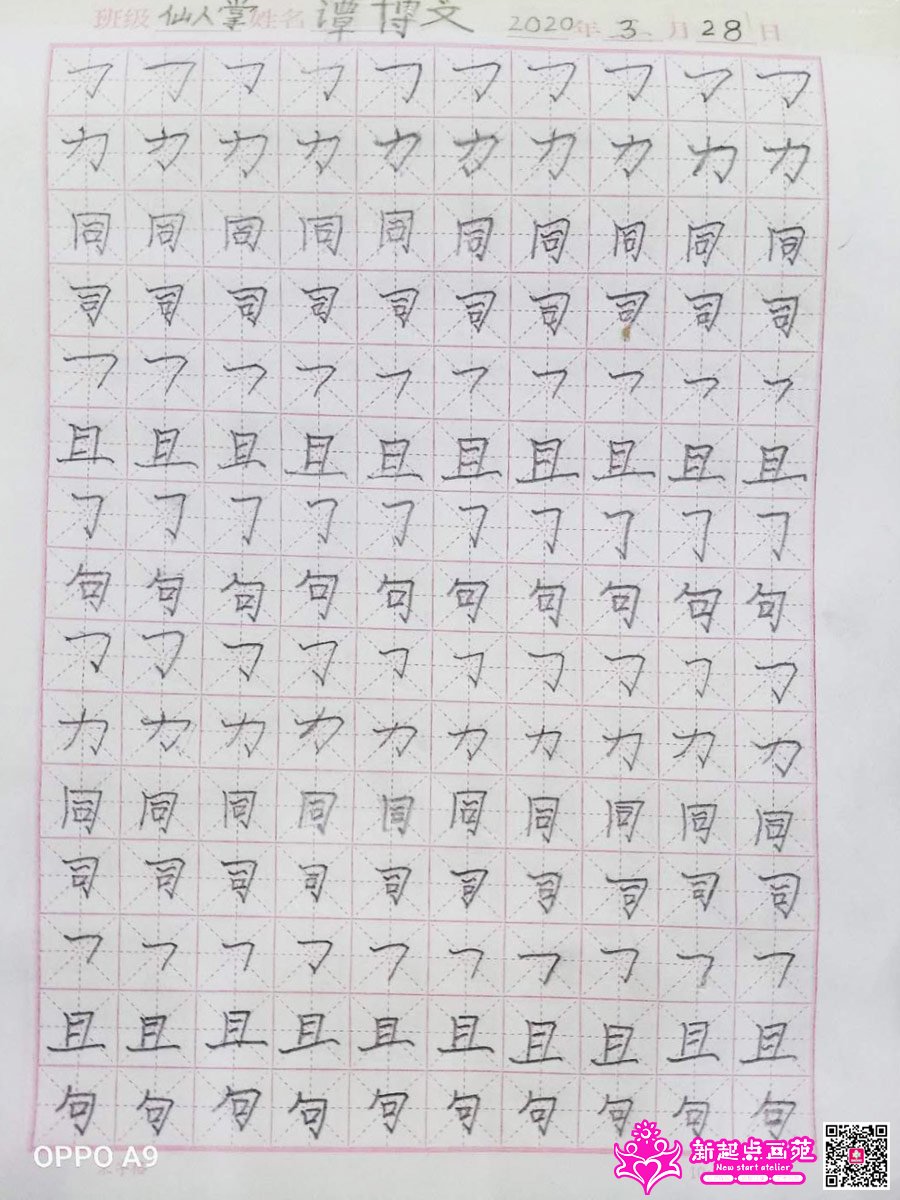 班级 仙人掌 姓名 谭博文 2020年3月28日
㇆ ㇆ ㇆ ㇆ ㇆ ㇆ ㇆ ㇆ ㇆ ㇆
力 力 力 力 力 力 力 力 力 力
同 同 同 同 同 同 同 同 同 同
司 司 司 司 司 司 司 司 司 司
㇇ ㇇ ㇇ ㇇ ㇇ ㇇ ㇇ ㇇ ㇇ ㇇
且 且 且 且 且 且 且 且 且 且
㇆ ㇆ ㇆ ㇆ ㇆ ㇆ ㇆ ㇆ ㇆ ㇆
句 句 句 句 句 句 句 句 句 句
㇆ ㇆ ㇆ ㇆ ㇆ ㇆ ㇆ ㇆ ㇆ ㇆
力 力 力 力 力 力 力 力 力 力
同 同 同 同 同 同 同 同 同 同
司 司 司 司 司 司 司 司 司 司
㇇ ㇇ ㇇ ㇇ ㇇ ㇇ ㇇ ㇇ ㇇ ㇇
且 且 且 且 且 且 且 且 且 且
句 句 句 句 句 句 句 句 句 句
OPPO A9
新起点画苑
New start atelier